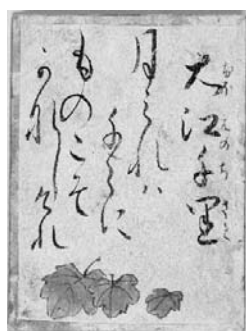 大江千里
おほえのちさと
月みれハ
千ゝに
ものこそ
かなしけれ